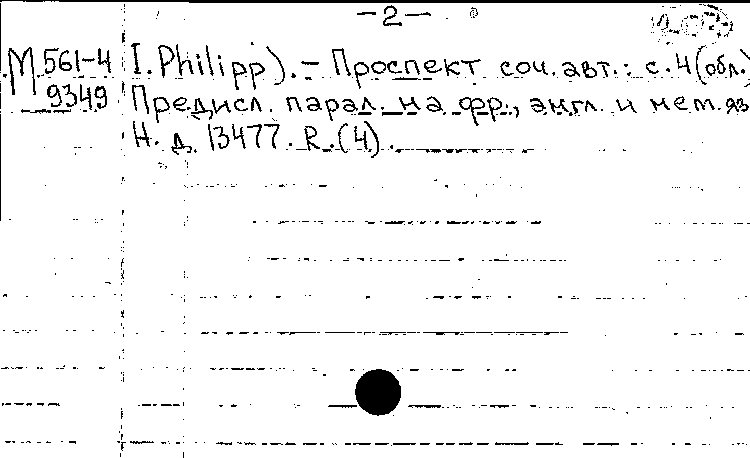 -2-
М 561-4 I. Philipp). - Проспект соч. авт.: с. 4 (обл.)
9349 Предисл. парал. на фр., англ. и нем. яз
Н. д. 13477. R. (4).